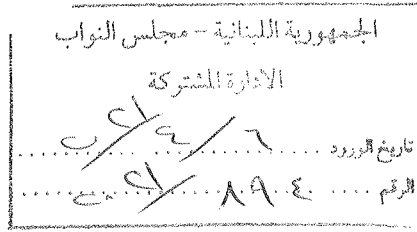 الجمهورية اللبنانية - مجلس النواب
الادارة المشتركة
تاريخ الورود ٦/٤/٢١
الرقم ٨٩٤/٢١